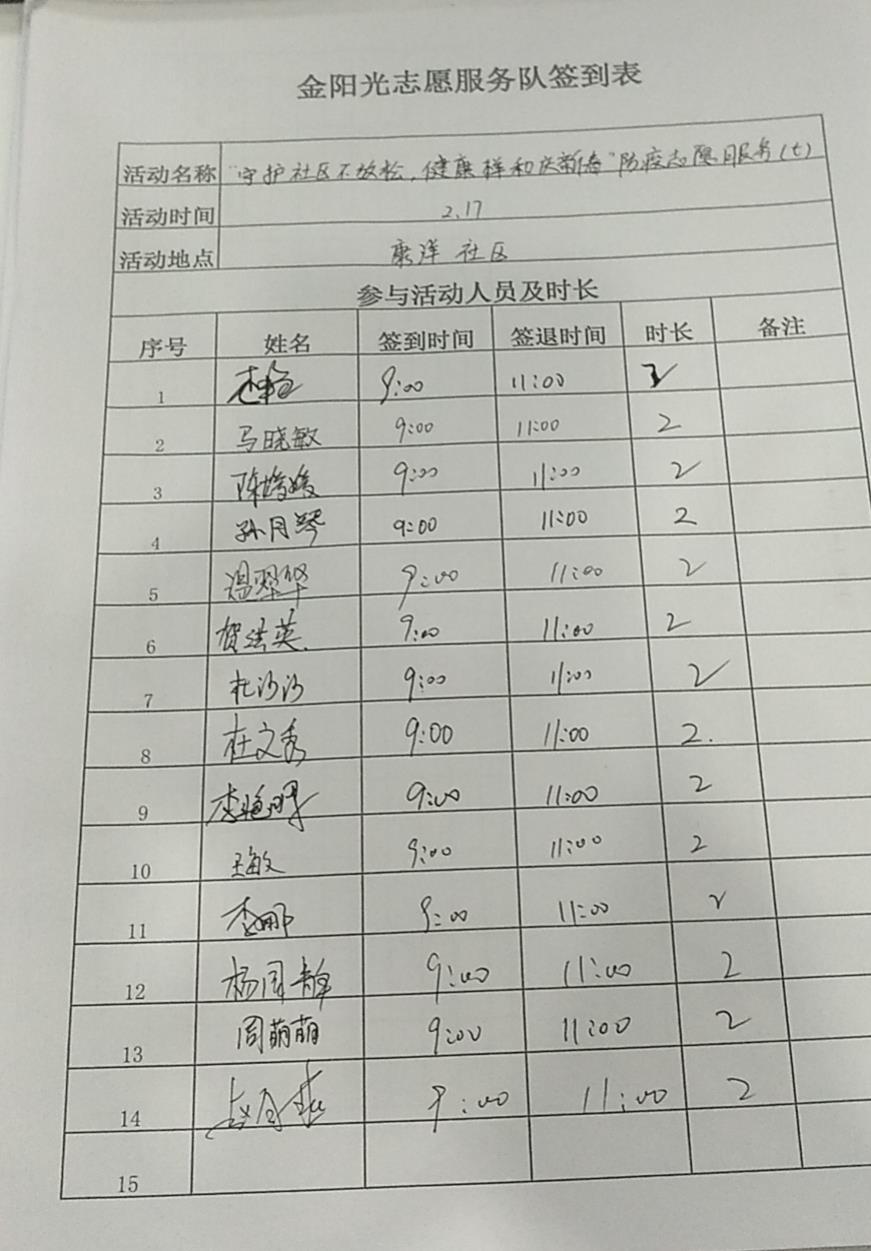 金阳光志愿服务队签到表
活动名称 "守护社区不放松,健康祥和庆新春"防疫志愿服务(七)
活动时间 2.17
活动地点 康洋 社区
参与活动人员及时长
序号 姓名 签到时间 签退时间 时长 备注
1 9:00 11:00 2
2 马晓敏 9:00 11:00 2
3 陈婷媛 9:00 11:00 2
4 孙月琴 9:00 11:00 2
5 温翠华 9:00 11:00 2
6 贺洪英 9:00 11:00 2
7 杜沙沙 9:00 11:00 2
8 杜文秀 9:00 11:00 2.
9 李艳明 9:00 11:00 2
10 王敏 9:00 11:00 2
11 李娜 9:00 11:00 2
12 杨国静 9:00 11:00 2
13 周萌萌 9:00 11:00 2
14 9:00 11:00 2
15